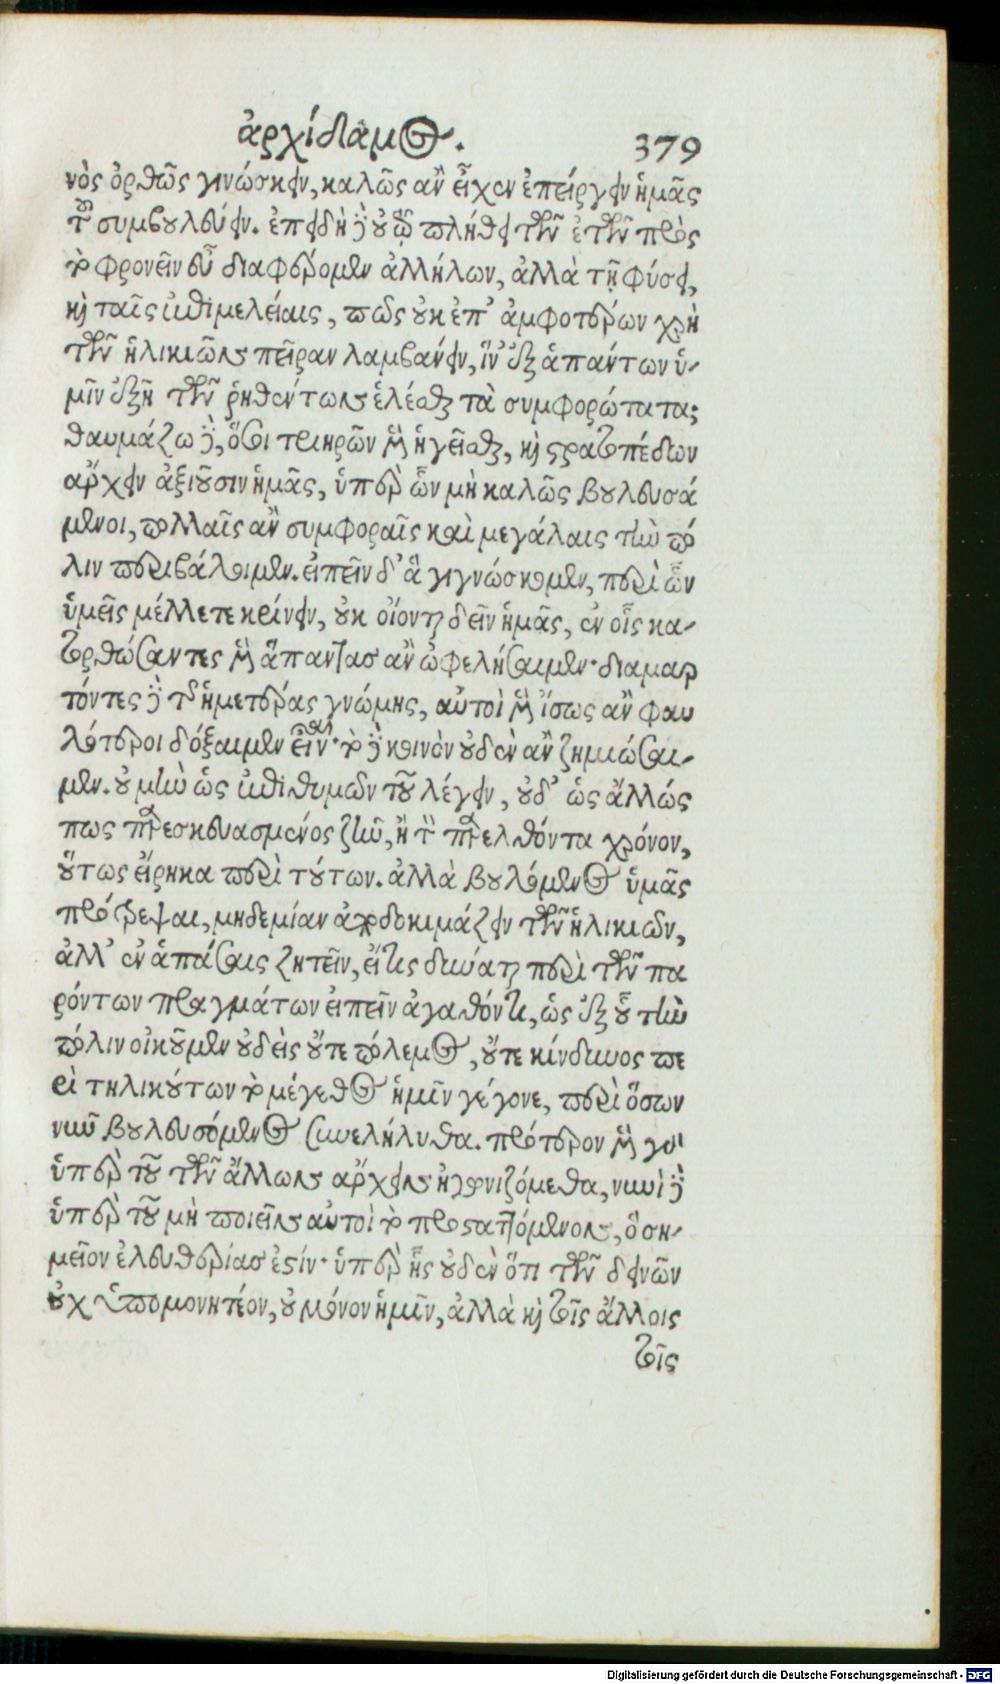 ἀρχίδαμος. 379
νὸς ὀρθῶς γινώσκειν, καλῶς ἂν εἶχεν ἐπείργειν ἡμᾶς
τοῦ συμβουλεύειν. ἐπειδὴ δὲ οὐ τῷ πλήθει τῶν ἐτῶν πρὸς
τὸ φρονεῖν εὖ διαφέρομεν ἀλλήλων, ἀλλὰ τῇ φύσει,
καὶ ταῖς ἐπιμελείαις, πῶς οὐκ ἐπ' ἀμφοτέρων χρὴ
τῶν ἡλικιῶν πεῖραν λαμβάνειν, ἵν' ἐξ ἁπάντων ὑ-
μῖν ἐξῇ τῶν ῥηθέντων ἑλέσθαι τὰ συμφορώτατα;
θαυμάζω δὲ, ὅσοι τριηρῶν μὲν ἡγεῖσθαι, καὶ στρατοπέδων
ἄρχειν ἀξιοῦσιν ἡμᾶς, ὑπὲρ ὧν μὴ καλῶς βουλευσά
μενοι, πολλαῖς ἂν συμφοραῖς καὶ μεγάλαις τὴν πό
λιν περιβάλοιμεν. εἰπεῖν δ' ἃ γιγνώσκομεν, περὶ ὧν
ὑμεῖς μέλλετε κρίνειν, οὐκ οἴονται δεῖν ἡμᾶς, ἐν οἷς κα-
τορθώσαντες μὲν ἅπαντας ἂν ὠφελήσαιμεν· διαμαρ
τόντες δὲ τῆς ἡμετέρας γνώμης, αὐτοὶ μὲν ἴσως ἂν φαυ
λότεροι δόξαιμεν εἶναι· τὸ δὲ κοινὸν οὐδὲν ἂν ζημιώσαι-
μεν. οὐ μὴν ὡς ἐπιθυμῶν τοῦ λέγειν, οὐδ' ὡς ἄλλώς
πως παρεσκευασμένος ζῆν, ἢ τὸν παρελθόντα χρόνον,
οὕτως εἴρηκα περὶ τούτων. ἀλλὰ βουλόμενος ὑμᾶς
προτρέψαι, μηδεμίαν ἀποδοκιμάζειν τῶν ἡλικιῶν,
ἀλλ' ἐν ἁπάσαις ζητεῖν, εἴ τις δύναται περὶ τῶν πα
ρόντων πραγμάτων εἰπεῖν ἀγαθόν τι, ὡς ἐξ οὗ τὴν
πόλιν οἰκοῦμεν οὐδεὶς οὔτε πόλεμος, οὔτε κίνδυνος πε
ρὶ τηλικούτων τὸ μέγεθος ἡμῖν γέγονε, περὶ ὅσων
νῦν βουλευσόμενος συνελήλυθα. πρότερον μὲν γὰρ
ὑπὲρ τοῦ τῶν ἄλλων ἄρχειν ἠγωνιζόμεθα, νυνὶ δὲ
ὑπὲρ τοῦ μὴ ποιεῖν αὐτοὶ τὸ προσταττόμενον, ὃ ση-
μεῖον ἐλευθερίας ἐστίν· ὑπὲρ ἧς οὐδὲν ὅτι τῶν δεινῶν
οὐχ ὑπομονητέον, οὐ μόνον ἡμῖν, ἀλλὰ καὶ τοῖς ἄλλοις
τοῖς
Digitalisierung gefördert durch die Deutsche Forschungsgemeinschaft - DFG